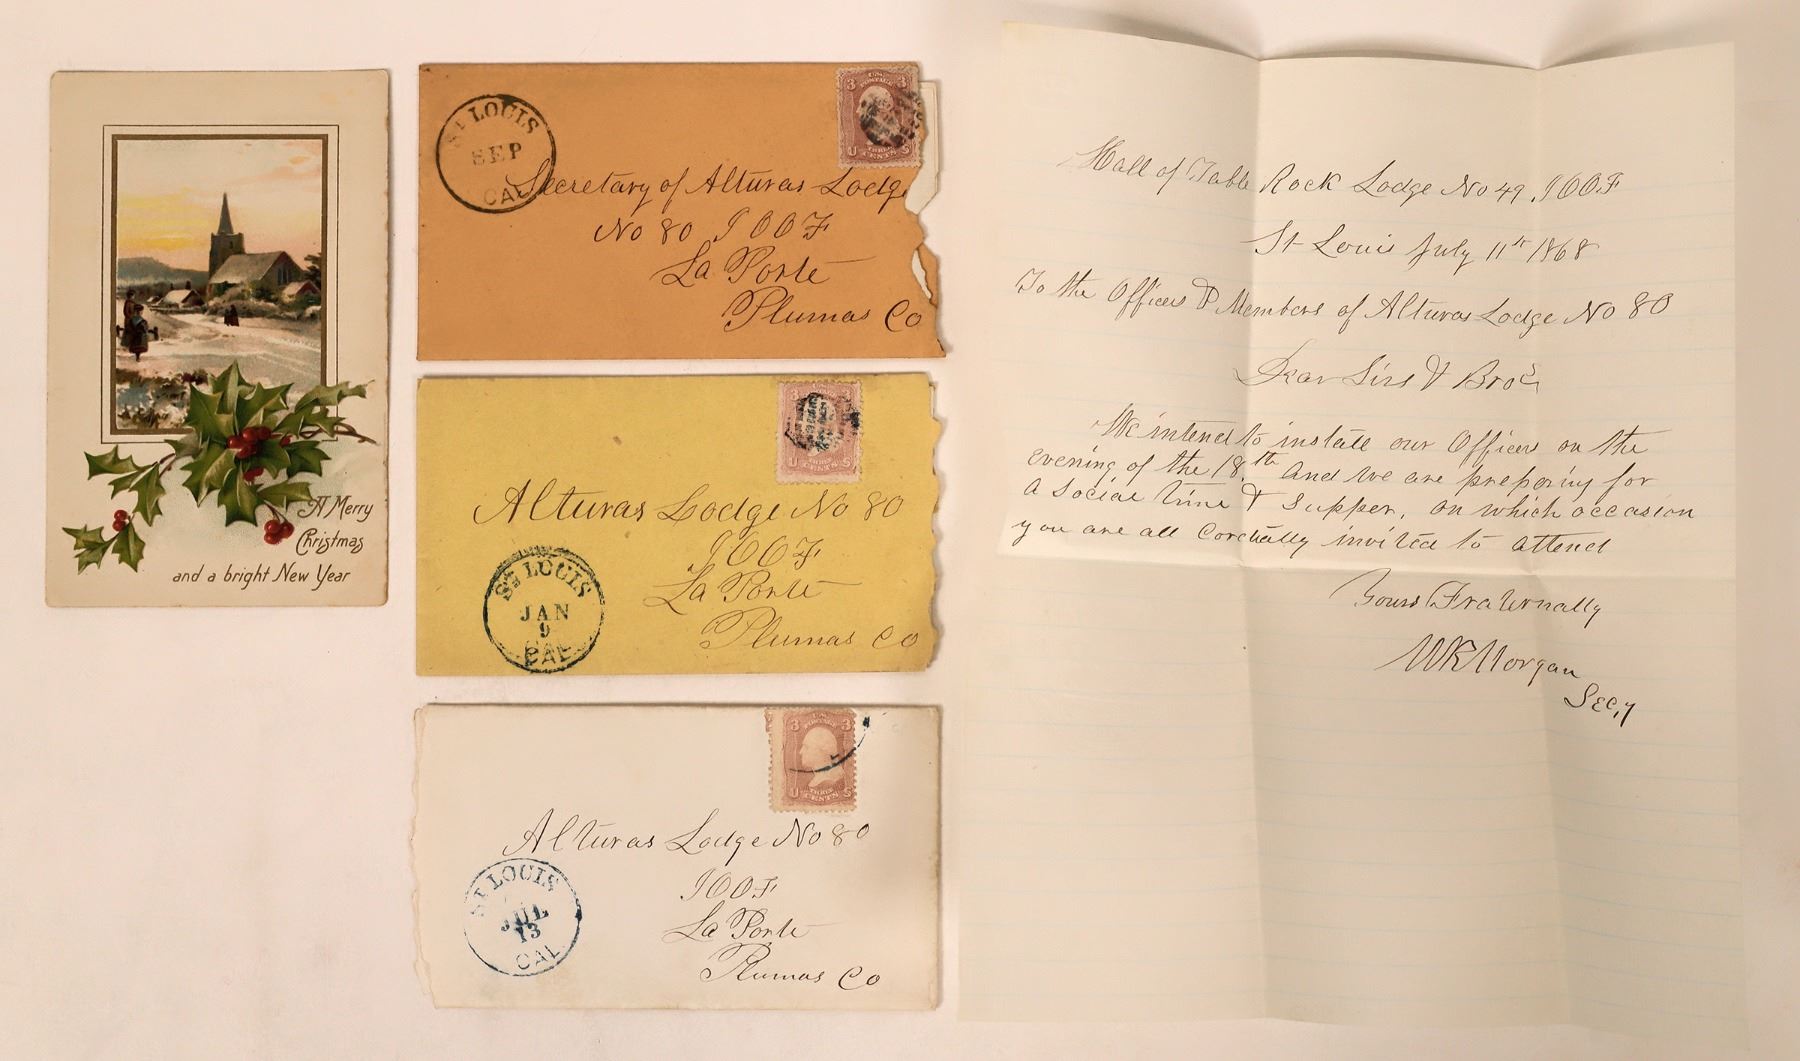 A Merry
Christmas
and a bright New Year
ST LOUIS
SEP
CAL
U.S.
POSTAGE
3 3
U THREE S
CENTS
Secretary of Alturas Lodge
No 80 IOOF
La Porte
Plumas Co
U S
CENTS
Alturas Lodge No 80
IOOF
La Porte
Plumas Co
ST LOUIS
JAN
9
CAL
U.S.
POSTAGE
3 3
U THREE S
CENTS
Alturas Lodge No 80
IOOF
La Porte
Plumas Co
ST LOUIS
JUL
13
CAL
Hall of Table Rock Lodge No 49, IOOF
St Louis July 11th 1868
To the Officers & Members of Alturas Lodge No 80
Dear Sirs & Bros
We intend to install our Officers on the
evening of the 18th. and we are preparing for
a social time & supper, on which occasion
you are all cordially invited to attend
Yours Fraternally
WK Morgan
Secy